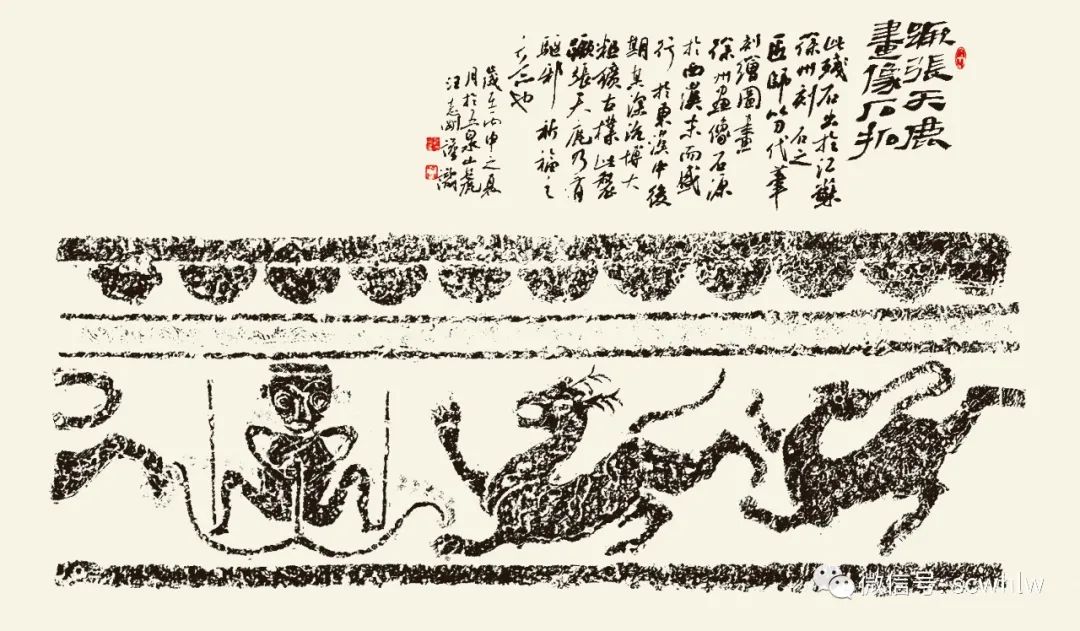 蹶張天鹿
畫像石拓
此殘石出於江蘇
徐州刻石之
匠師以刀代筆
刻繪圖畫
徐州畫像石源
於西漢末而盛
行於東漢中後
期其深沉博大
粗獷古樸此
蹶張天鹿乃有
驅邪祈福之
意也
歲在丙申之夏
月於五泉山麓
汪志剛謹識
微信号: scwhlw